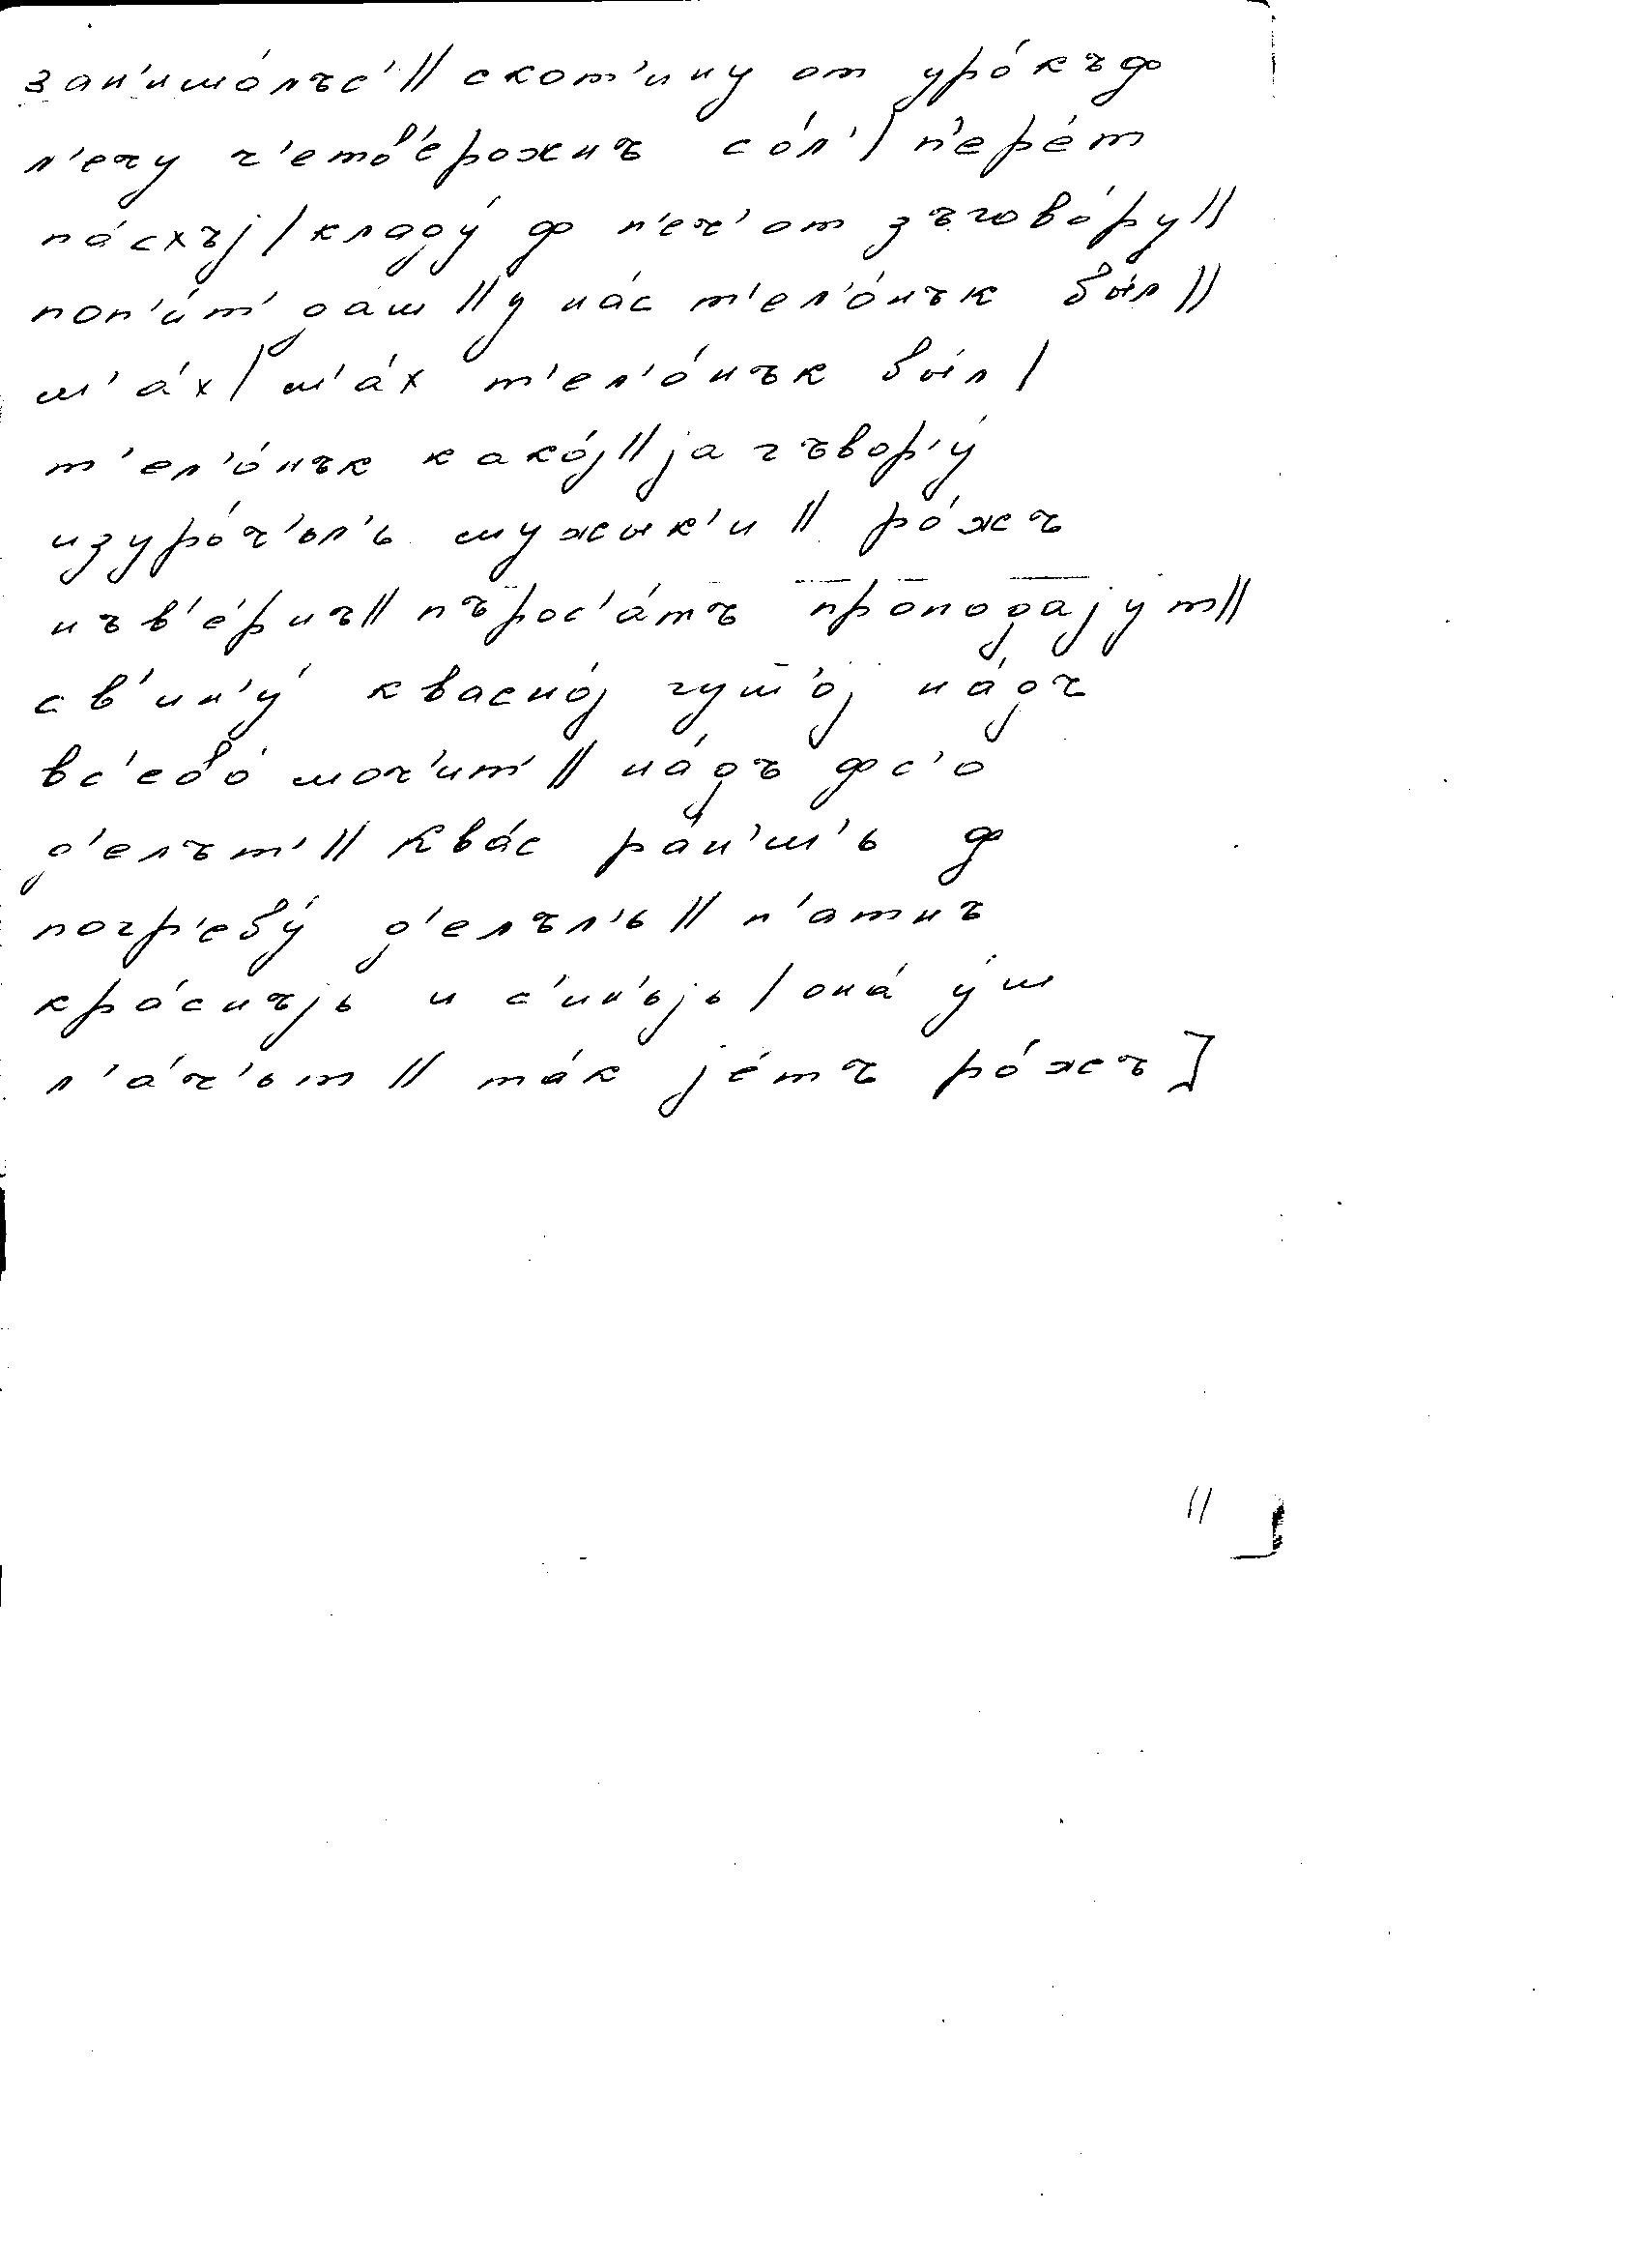 зан'ишо́лъс'|| скот'ину от уро́къф
л'ечу ч'етв'е́рожнъ со́л'| п'ере́т
па́схъј | кладу́ ф п'еч' от зъгово́ру||
поп'и́т' даш || у на́с т'ел'о́нък бы́л ||
м'а́х | м'а́х т'ел'о́нък бы́л |
т'ел'о́нък како́ј || ја гъвор'у́
изуро́ч'ьл'ь мужык'и || ро́жъ
нъв'е́рнъ || пърос'а́тъ проподају́т ||
св'ин'у́ квасно́ј гуш'о́ј на́дъ
вс'ево́ моч'ит' || на́дъ фс'о
д'елът' || Ква́с ра́н'ш'ь ф
погр'ебу́ д'елъл'ь || п'атнъ
кра́снъјь и с'ин'ьјь | она́ у́ш
л'а́ч'ьт || та́к је́тъ ро́жъ]
||